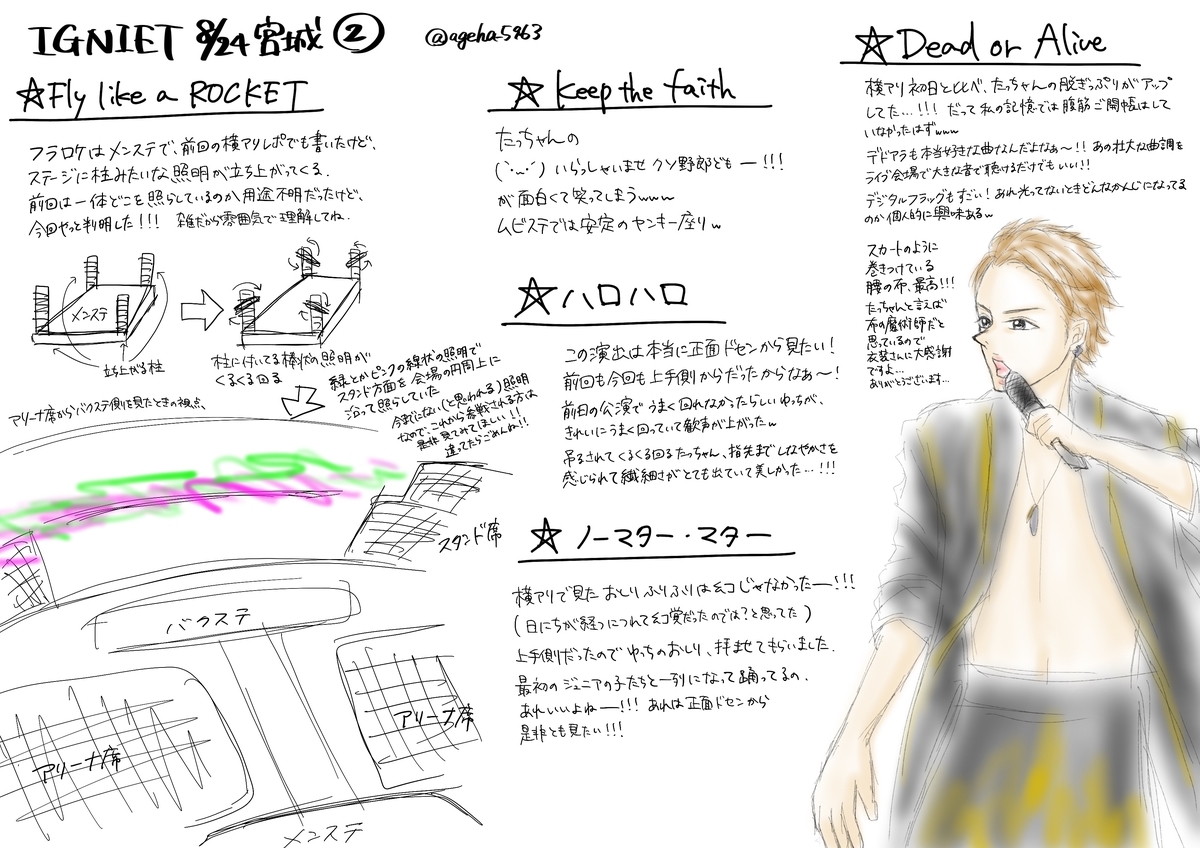 IGNIET 8/24 宮城 ②
@ageha5863
☆Fly like a ROCKET
フラロケはメンステで、前回の横アリレポでも書いたけど、
ステージに柱みたいな照明が立ち上がってくる。
前回は一体どこを照らしているのか用途不明だったけど、
今回やっと判明した!!! 雑だから雰囲気で理解してね。
メンステ
立ち上がる柱
柱に付いてる棒状の照明が
くるくる回る
緑とかピンクの線状の照明で
スタンド方面を会場の円周上に
沿って照らしていた
今までにない(と思われる)照明
なので、これから参戦される方は
是非見てみてほしい!!
違ってたらごめんね!!
アリーナ席からバクステ側を見たときの視点、
スタンド席
バクステ
アリーナ席
アリーナ席
メンステ
☆ Keep the faith
たっちゃんの
いらっしゃいませ クソ野郎ども ー!!!
が面白くて笑ってしまうwww
ムビステでは安定のヤンキー座りw
☆ ハロハロ
この演出は本当に正面ドセンから見たい!
前回も今回も上手側からだったからなぁ〜!
前日の公演でうまく回れなかったらしいゆっちが、
きれいにうまく回っていて歓声が上がったw
吊るされてくるくる回るたっちゃん、指先までしなやかさを
感じられて繊細さがとても出ていて美しかった…!!!
☆ ノーマター・マター
横アリで見た おしりふりふりは幻じゃなかったー!!!
(日にちが経つにつれて幻覚だったのでは?と思ってた)
上手側だったので ゆっちのおしり、拝ませてもらいました。
最初のジュニアの子たちと一列になって踊ってるの、
あれいいよねー!!! あれは正面ドセンから
是非とも見たい!!!
☆Dead or Alive
横アリ初日と比べ、たっちゃんの脱ぎっぷりがアップ
してた…!!! だって私の記憶では腹筋ご開帳はして
いなかったはずwww
デドアラも本当好きな曲なんだよなぁ〜!! あの壮大な曲調を
ライブ会場で大きな音で聴けるだけでもいい!!
デジタルフラッグもすごい!あれ光ってないときどんなかんじになってる
のか個人的に興味あるw
スカートのように
巻きつけている
腰の布、最高!!!
たっちゃんと言えば
布の魔術師だと
思っているので
衣装さんに大感謝
ですよ…
ありがとうございます…